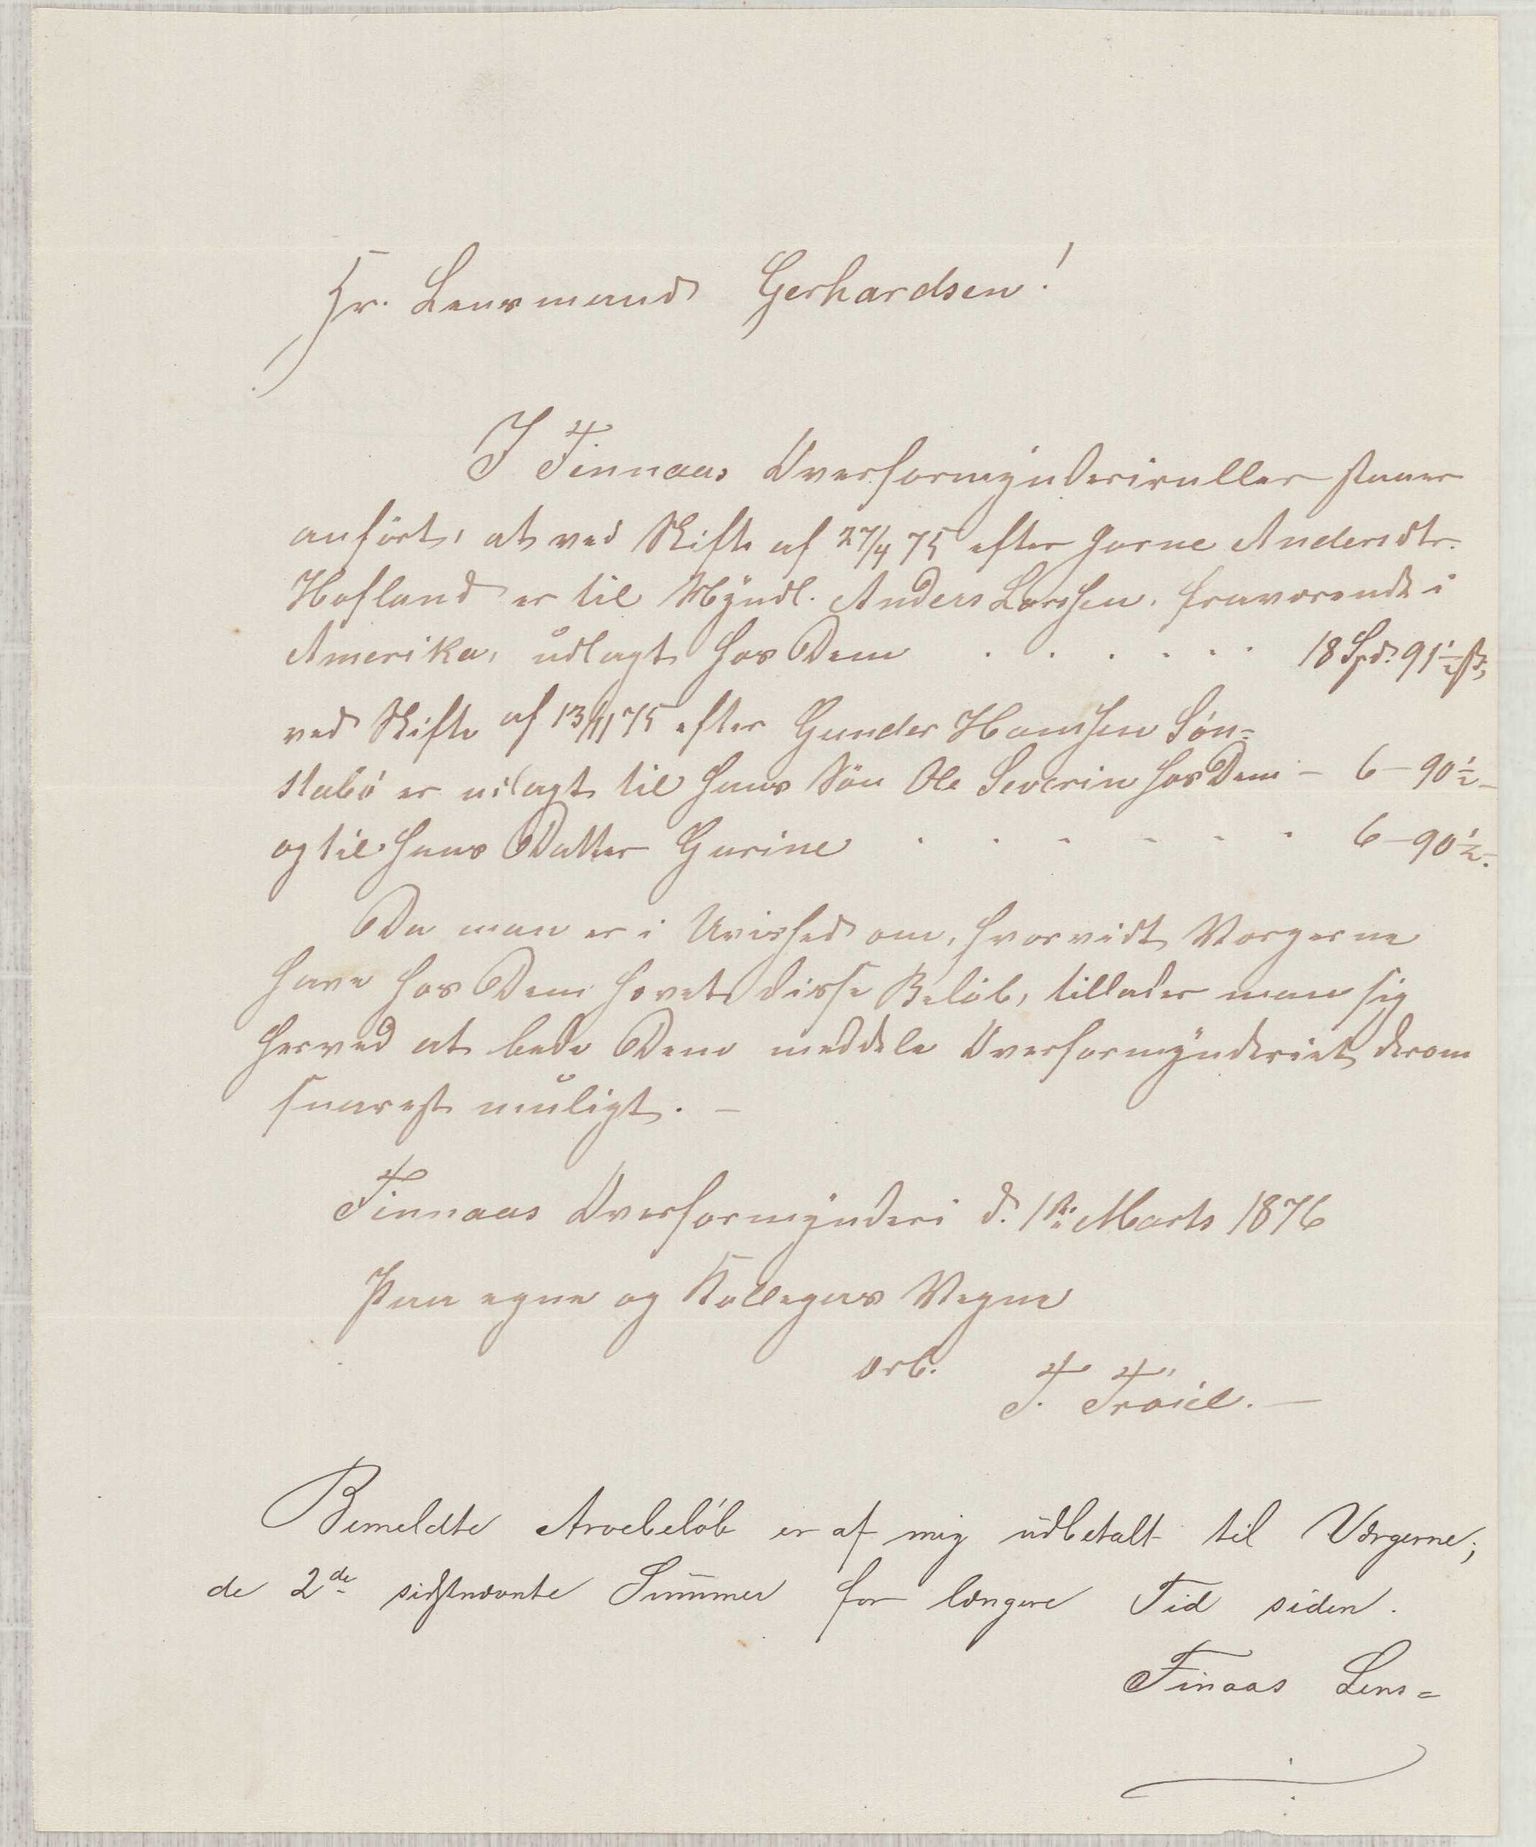 Hr. Lensmand Gerhardsen!
I Finnaas Overformynderiruller staaer
anført, at ved Skifte af 27/4 75 efter Gorne Andersdtr.
Hofland er til Myndl. Anders Larssen, fraværende i
Amerika, udlagt hos Dem . . . . . . 18 Spd. 91½ ß,
ved Skifte af 13/11 75 efter Gunder Hansen Søn=
stabø er udlagt til hans Søn Ole Severin hos Dem – 6 – 90½ –
og til hans Datter Gurine . . . . . . 6 – 90½ –.
Da man er i Uvished om, hvorvidt Værgerne
have hos Dem hevet disse Beløb, tillader man sig
herved at bede Dem meddele Overformynderiet derom
snarest muligt. –
Finnaas Overformynderi d. 1ste Marts 1876
Paa egne og Kollegas Vegne
ærb. T. Trøiel. –
Bemeldte Arvebeløb er af mig udbetalt til Værgerne;
de 2de sidstnævnte Summer for længere Tid siden.
Finaas Lens=